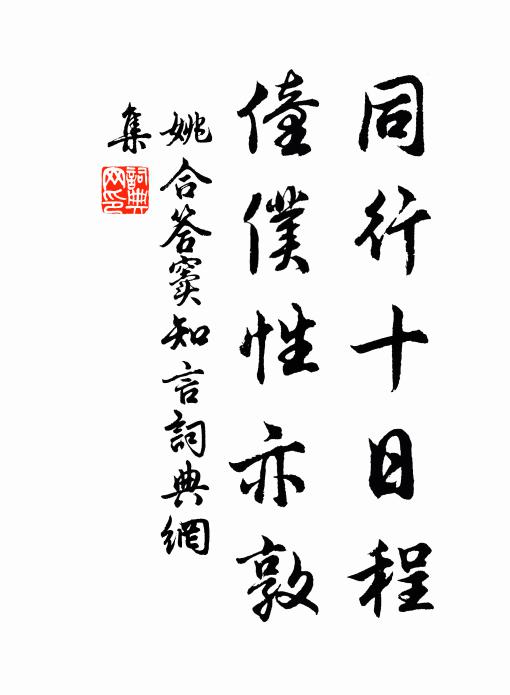 同行十日程
僮僕性亦敦
姚合答窦知言詞典網
集
詞典
网印